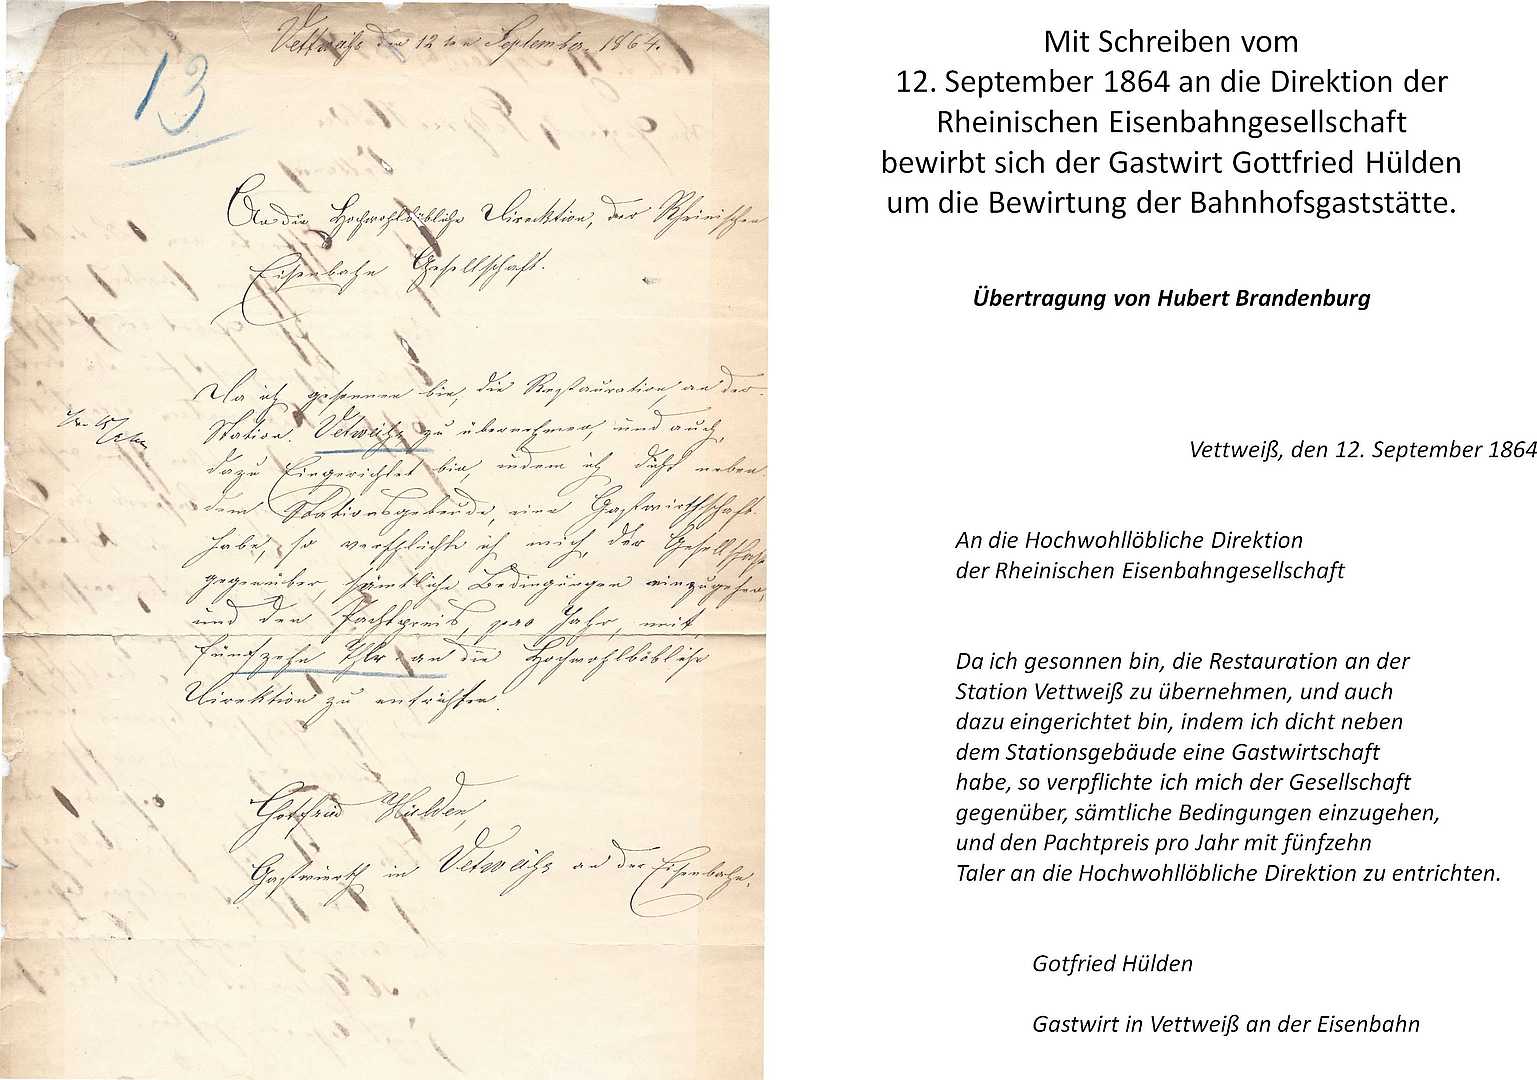 Vettweiß den 12ten September 1864.
13
An die Hochwohllöbliche Direcktion, der Rheinischen
Eisenbahn Gesellschaft.
Da ich gesonnen bin, die Restauration, an der
Station Vetweihs zu übernehmen, und auch,
dazu Eingerichtet bin, indem ich dicht neben
dem Stationsgebeude, eine Gastwirthschaft
habe, so verpflichte ich mich, der Gesellschaft
gegenüber, sämtliche Bedingungen einzugehen,
und den Pachtpreis, pro Jahr, mit
fünfzehn Thlr. an die Hochwohllöbliche
Direktion zu entrichten.
Gotfried Hülden,
Gastwierth in Vetweihs an der Eisenbahn.
Mit Schreiben vom
12. September 1864 an die Direktion der
Rheinischen Eisenbahngesellschaft
bewirbt sich der Gastwirt Gottfried Hülden
um die Bewirtung der Bahnhofsgaststätte.
Übertragung von Hubert Brandenburg
Vettweiß, den 12. September 1864
An die Hochwohllöbliche Direktion
der Rheinischen Eisenbahngesellschaft
Da ich gesonnen bin, die Restauration an der
Station Vettweiß zu übernehmen, und auch
dazu eingerichtet bin, indem ich dicht neben
dem Stationsgebäude eine Gastwirtschaft
habe, so verpflichte ich mich der Gesellschaft
gegenüber, sämtliche Bedingungen einzugehen,
und den Pachtpreis pro Jahr mit fünfzehn
Taler an die Hochwohllöbliche Direktion zu entrichten.
Gotfried Hülden
Gastwirt in Vettweiß an der Eisenbahn